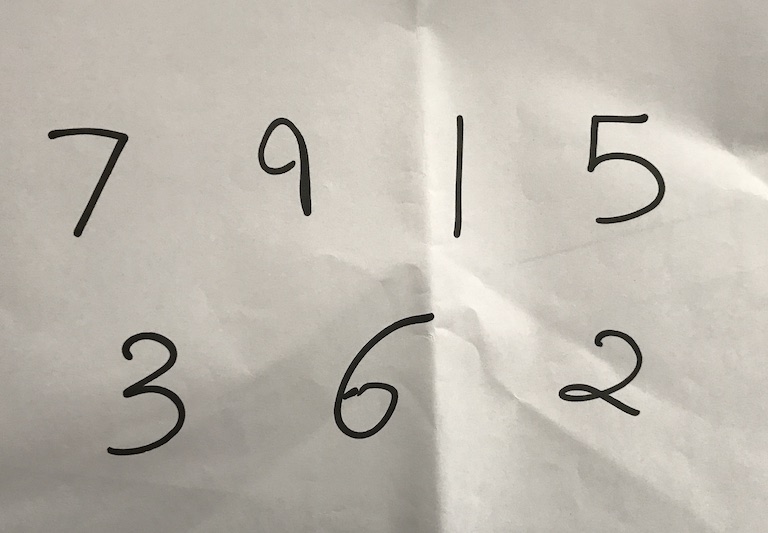 7 9 1 5
3 6 2